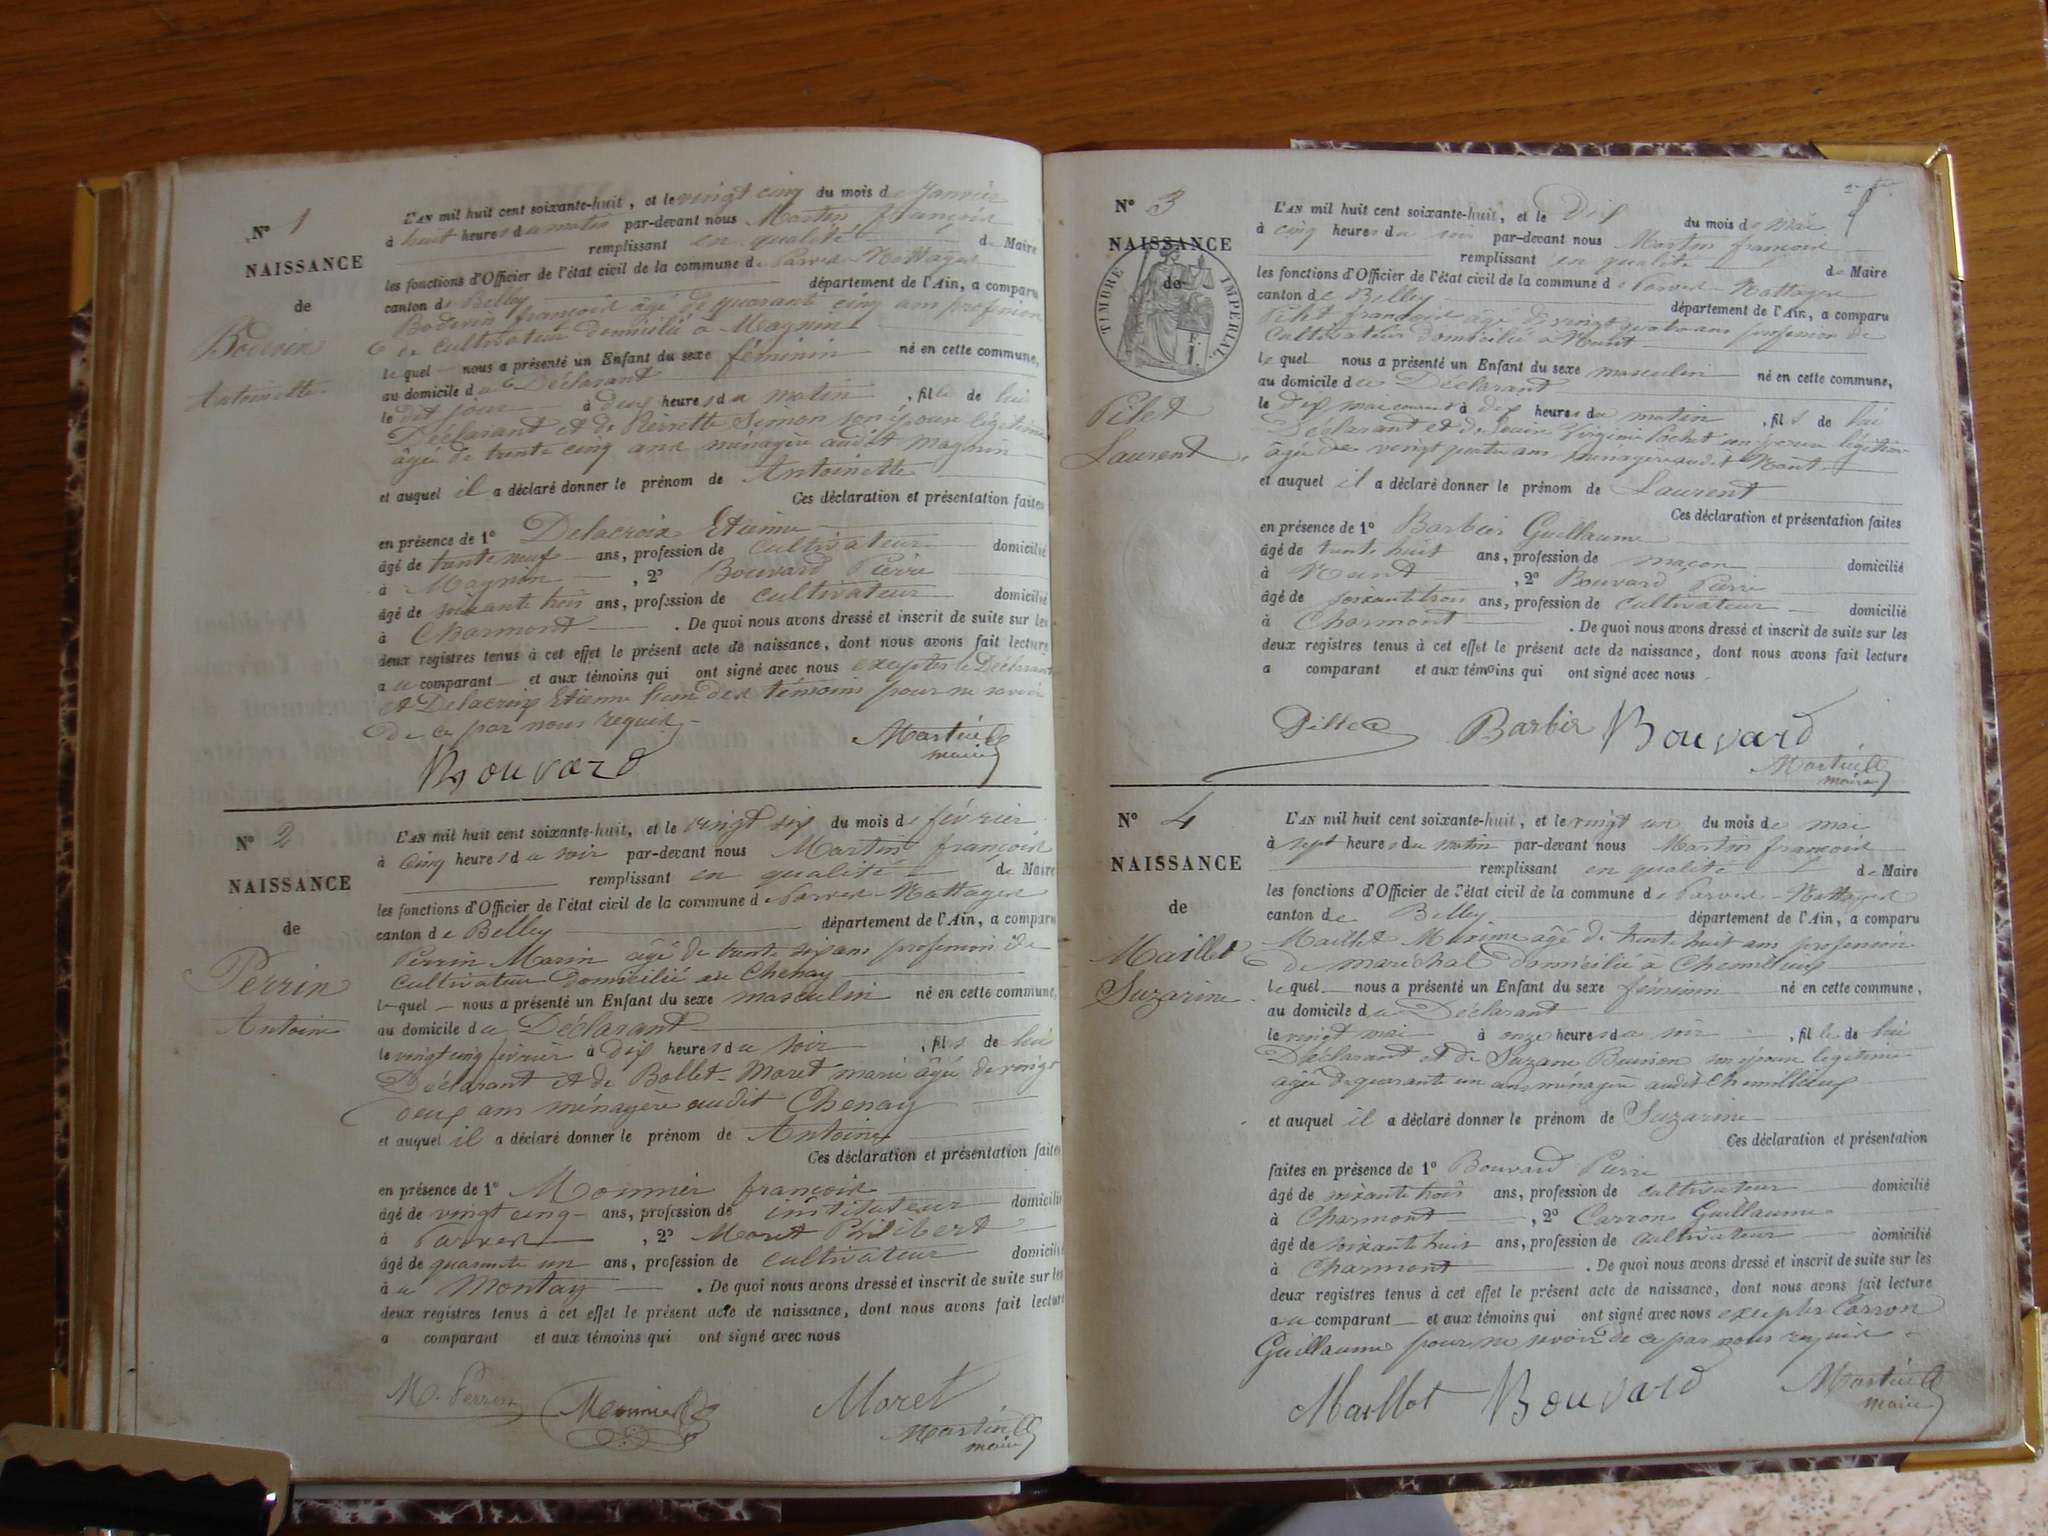 N° 1
NAISSANCE
de
Antoinette
L'AN mil huit cent soixante-huit, et le vingt cinq du mois de Janvier
à huit heures du matin par-devant nous Martin françois
remplissant en qualité de Maire
les fonctions d'Officier de l'état civil de la commune de Parves-Nattages
canton de Belley département de l'Ain, a comparu
françois âgé de quarante cinq ans profession
de cultivateur domicilié à Magnin
le quel nous a présenté un Enfant du sexe féminin né en cette commune,
au domicile du Déclarant
le dit jour à deux heures du matin, fille de lui
Déclarant et de Pierrette Simon son épouse légitime
âgée de trente cinq ans ménagère audit Magnin
et auquel il a déclaré donner le prénom de Antoinette
Ces déclaration et présentation faites
en présence de 1° Delacroix Etienne
âgé de trente neuf ans, profession de cultivateur domicilié
à Magnin, 2° Bouvard Pierre
âgé de soixante trois ans, profession de cultivateur domicilié
à Charmont. De quoi nous avons dressé et inscrit de suite sur les
deux registres tenus à cet effet le présent acte de naissance, dont nous avons fait lecture
au comparant et aux témoins qui ont signé avec nous excepter le Déclarant
et Delacroix Etienne l'un des témoins pour ne savoir
de ce par nous requis
Bouvard Martin
maire
N° 2
NAISSANCE
de
Perrin
Antoine
L'AN mil huit cent soixante-huit, et le vingt six du mois de février
à cinq heures du soir par-devant nous Martin françois
remplissant en qualité de Maire
les fonctions d'Officier de l'état civil de la commune de Parves-Nattages
canton de Belley département de l'Ain, a comparu
Perrin Marin âgé de trente six ans profession de
cultivateur domicilié au Chenay
le quel nous a présenté un Enfant du sexe masculin né en cette commune,
au domicile du Déclarant
le vingt cinq février à dix heures du soir, fils de lui
Déclarant et de Bollet-Moret marie âgée de vingt
deux ans ménagère audit Chenay
et auquel il a déclaré donner le prénom de Antoine
Ces déclaration et présentation faites
en présence de 1° Monnier françois
âgé de vingt cinq ans, profession de instituteur domicilié
à Parves, 2° Moret Philibert
âgé de quarante un ans, profession de cultivateur domicilié
à au Montay. De quoi nous avons dressé et inscrit de suite sur les
deux registres tenus à cet effet le présent acte de naissance, dont nous avons fait lecture
a comparant et aux témoins qui ont signé avec nous
M. Perrin Monnier Moret
Martin
maire
N° 3
NAISSANCE
de
TIMBRE IMPERIAL
Pilet
Laurent
L'AN mil huit cent soixante-huit, et le Dix du mois de mai
à cinq heures du soir par-devant nous Martin françois
remplissant en qualité de Maire
les fonctions d'Officier de l'état civil de la commune de Parves-Nattages
canton de Belley département de l'Ain, a comparu
Pilet françois âgé de vingt quatre ans profession de
Cultivateur domicilié à Nant
le quel nous a présenté un Enfant du sexe masculin né en cette commune,
au domicile du Déclarant
le dix mai courant à dix heures du matin, fils de lui
Déclarant et de Virginie Pochet son épouse légitime
âgée de vingt quatre ans ménagère audit Nant
et auquel il a déclaré donner le prénom de Laurent
Ces déclaration et présentation faites
en présence de 1° Barbier Guillaume
âgé de trente huit ans, profession de maçon domicilié
à Nant, 2° Bouvard Pierre
âgé de soixante trois ans, profession de cultivateur domicilié
à Charmont. De quoi nous avons dressé et inscrit de suite sur les
deux registres tenus à cet effet le présent acte de naissance, dont nous avons fait lecture
a comparant et aux témoins qui ont signé avec nous
Barbier Bouvard
Martin
maire
N° 4
NAISSANCE
de
Maillet
Suzarine
L'AN mil huit cent soixante-huit, et le vingt un du mois de mai
à sept heures du matin par-devant nous Martin françois
remplissant en qualité de Maire
les fonctions d'Officier de l'état civil de la commune de Parves-Nattages
canton de Belley département de l'Ain, a comparu
Maillet Maxime âgé de trente huit ans profession
de maréchal domicilié à Chemillieux
le quel nous a présenté un Enfant du sexe féminin né en cette commune,
au domicile du Déclarant
le vingt mai à onze heures du soir, fille de lui
Déclarant et de Suzane son épouse légitime
âgée de quarante un ans ménagère audit Chemillieux
et auquel il a déclaré donner le prénom de Suzarine
Ces déclaration et présentation
faites en présence de 1° Bouvard Pierre
âgé de soixante trois ans, profession de cultivateur domicilié
à Charmont, 2° Carron Guillaume
âgé de soixante huit ans, profession de cultivateur domicilié
à Charmont. De quoi nous avons dressé et inscrit de suite sur les
deux registres tenus à cet effet le présent acte de naissance, dont nous avons fait lecture
au comparant et aux témoins qui ont signé avec nous excepter Carron
Guillaume pour ne savoir de ce par nous requis
Maillet Bouvard Martin
maire